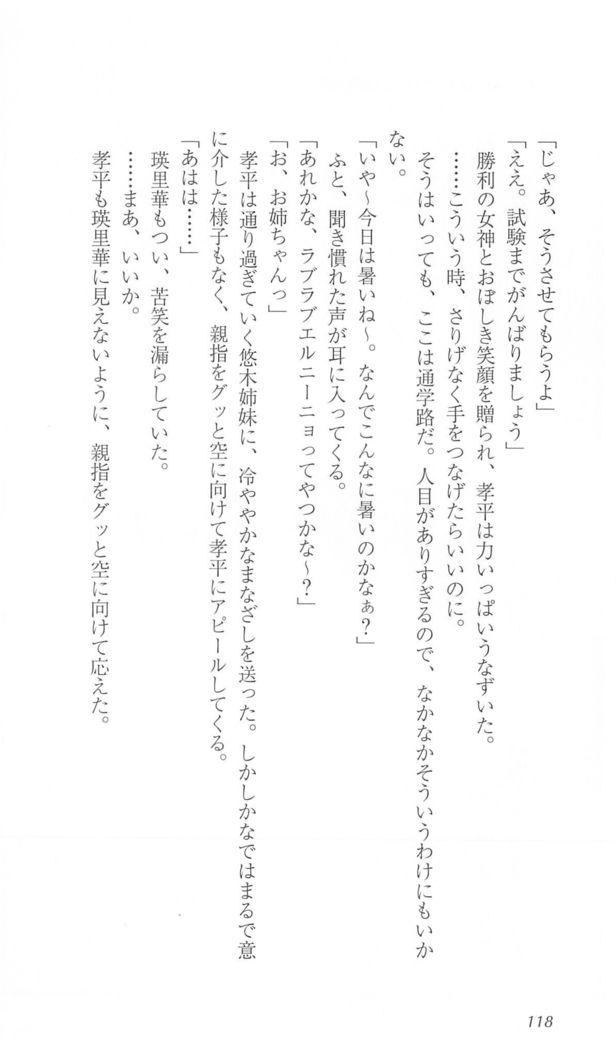 「じゃあ、そうさせてもらうよ」
「ええ。試験までがんばりましょう」
勝利の女神とおぼしき笑顔を贈られ、孝平は力いっぱいうなずいた。
……こういう時、さりげなく手をつなげたらいいのに。
そうはいっても、ここは通学路だ。人目がありすぎるので、なかなかそういうわけにもいか
ない。
「いや～今日は暑いね～。なんでこんなに暑いのかなぁ？」
ふと、聞き慣れた声が耳に入ってくる。
「あれかな、ラブラブエルニーニョってやつかな～？」
「お、お姉ちゃんっ」
孝平は通り過ぎていく悠木姉妹に、冷ややかなまなざしを送った。しかしかなではまるで意
に介した様子もなく、親指をグッと空に向けて孝平にアピールしてくる。
「あはは……」
瑛里華もつい、苦笑を漏らしていた。
……まあ、いいか。
孝平も瑛里華に見えないように、親指をグッと空に向けて応えた。
118